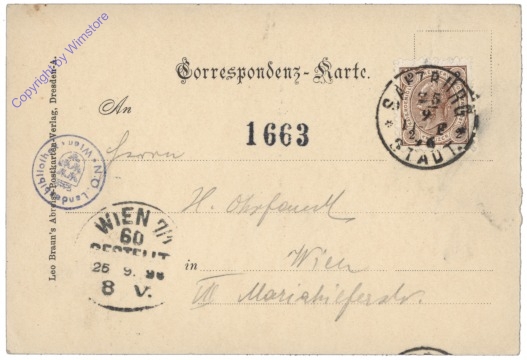 Copyright by Wimstore
Correspondenz-Karte.
An
1663
SALZBURG
STADT.
Herrn
N.Ö. Landesbibliothek * Wien *
H.
WIEN 7/1
60
BESTELLT
25 9. 98
8 V.
in Wien
VII Mariahilferstr.
Leo Braun's Abreiss-Postkarten-Verlag, Dresden-A.